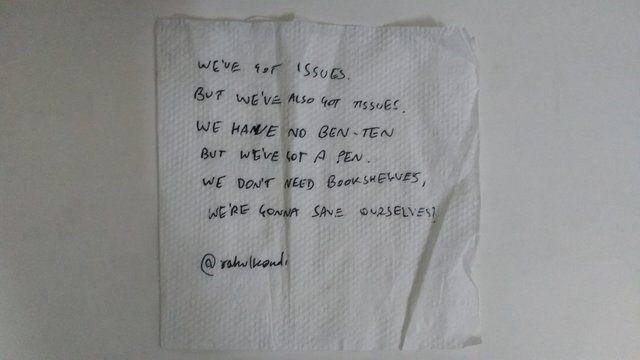 WE'VE GOT ISSUES.
BUT WE'VE ALSO GOT TISSUES.
WE HAVE NO BEN-TEN
BUT WE'VE GOT A PEN.
WE DON'T NEED BOOKSHELVES,
WE'RE GONNA SAVE OURSELVES!
@rahulkondi